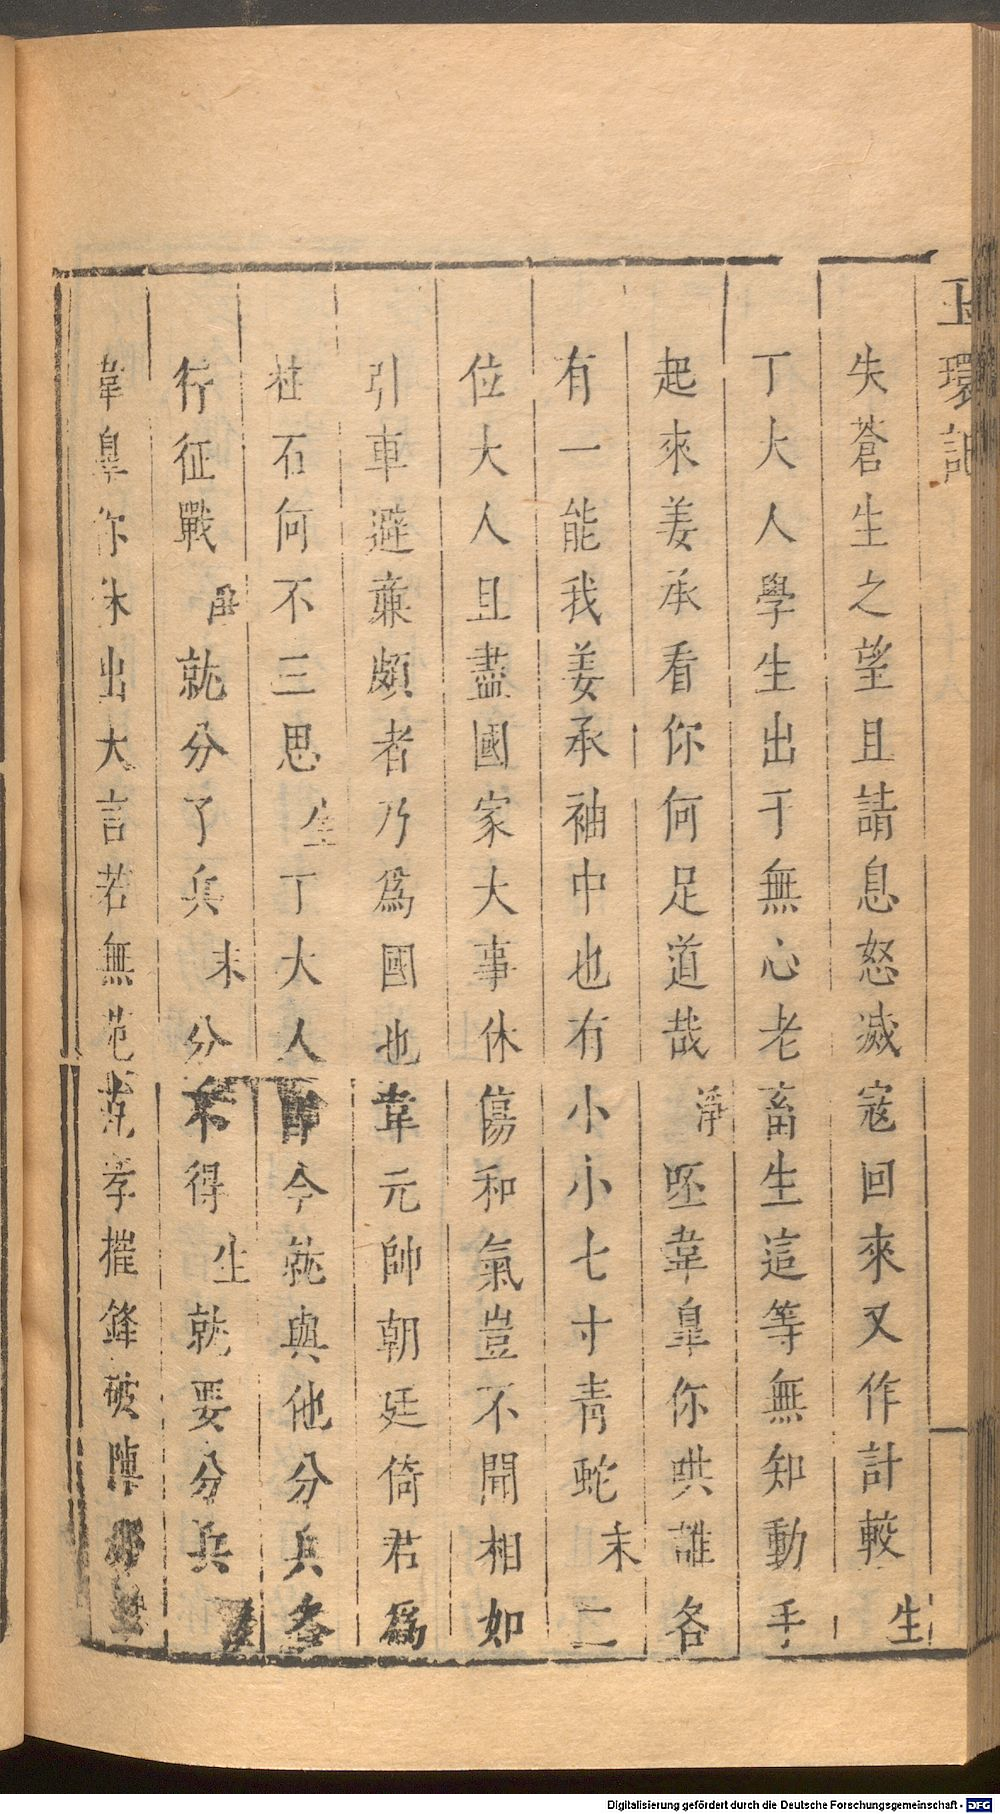 玉環記
失蒼生之望且請息怒滅寇回來又作計較生
丁大人學生出于無心老畜生這等無知動手
起來姜承看你何足道哉淨呸韋皐你哄誰各
有一能我姜承袖中也有小小七寸青蛇末二
位大人且盡國家大事休傷和氣豈不聞相如
引車避亷頗者乃爲國也韋元帥朝廷倚君爲
柱石何不三思生丁大人今就與他分兵各
行征戰就分了兵末分不得生就要分兵
韋皐你休出大言若無范克孝摧鋒破陣
Digitalisierung gefördert durch die Deutsche Forschungsgemeinschaft - DFG